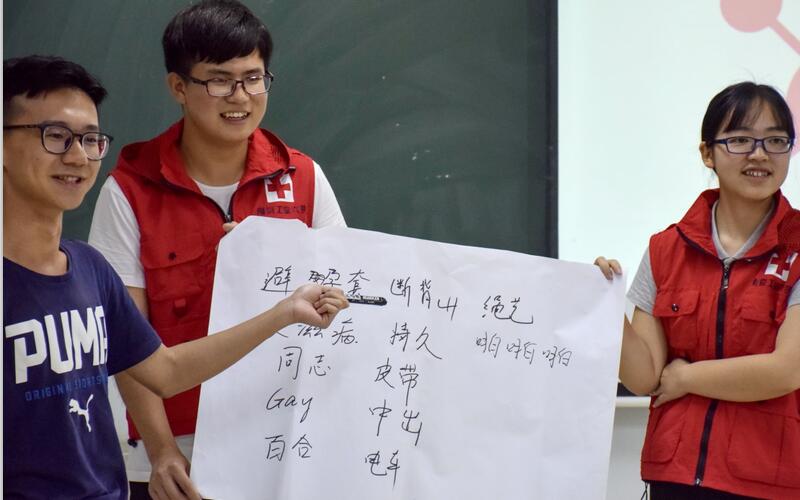 PUMA
ORIGINAL
避孕套
滋病
同志
Gay
百合
断背山
持久
皮带
中出
电车
绳艺
啪啪啪